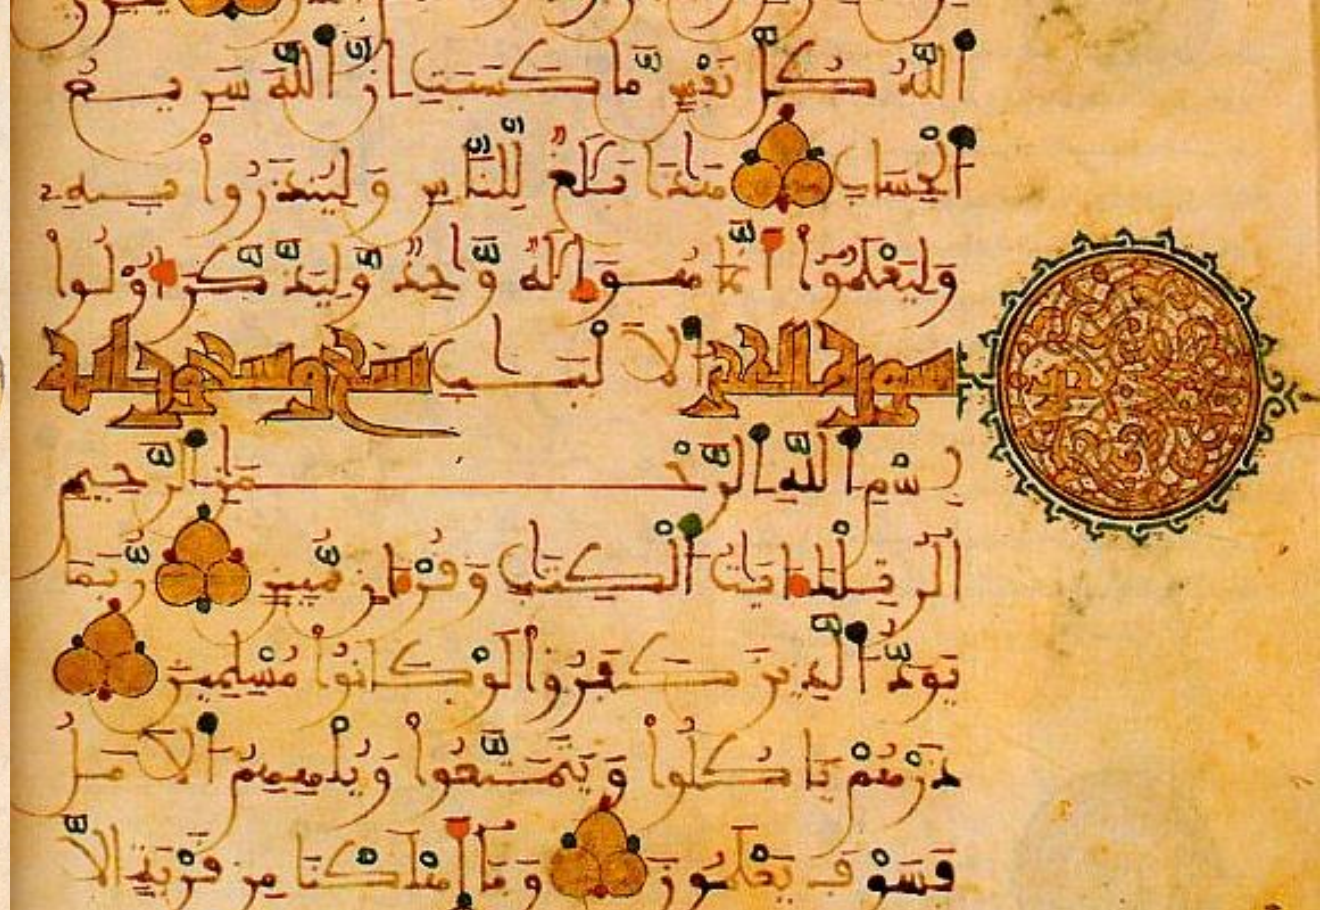 اللَّهُ كُلَّ نَفْسٍ مَّا كَسَبَتِ انَّ اللَّهَ سَرِيعُ
الْحِسَابِ هَٰذَا بَلَٰغٌ لِّلنَّاسِ وَلِيُنذَرُوا بِهِۦ
وَلِيَعْلَمُوٓا أَنَّمَا هُوَ إِلَٰهٌ وَّٰحِدٌ وَّلِيَذَّكَّرَ أُوْلُوا
سورة الحجر الَالْبَٰبِ تسع وتسعون اية
بِسْمِ اللَّهِ الرَّحْمَٰنِ الرَّحِيمِ
الَٓرۚ تِلْكَ ءَايَٰتُ الْكِتَٰبِ وَقُرْءَانٍ مُّبِينٍ رُّبَمَا
يَوَدُّ الَّذِينَ كَفَرُوا لَوْ كَانُوا مُسْلِمِينَ
ذَرْهُمْ يَاكُلُوا وَيَتَمَتَّعُوا وَيُلْهِهِمُ الَامَلُ
فَسَوْفَ يَعْلَمُونَ وَمَآ أَهْلَكْنَا مِن قَرْيَةٍ الَّا